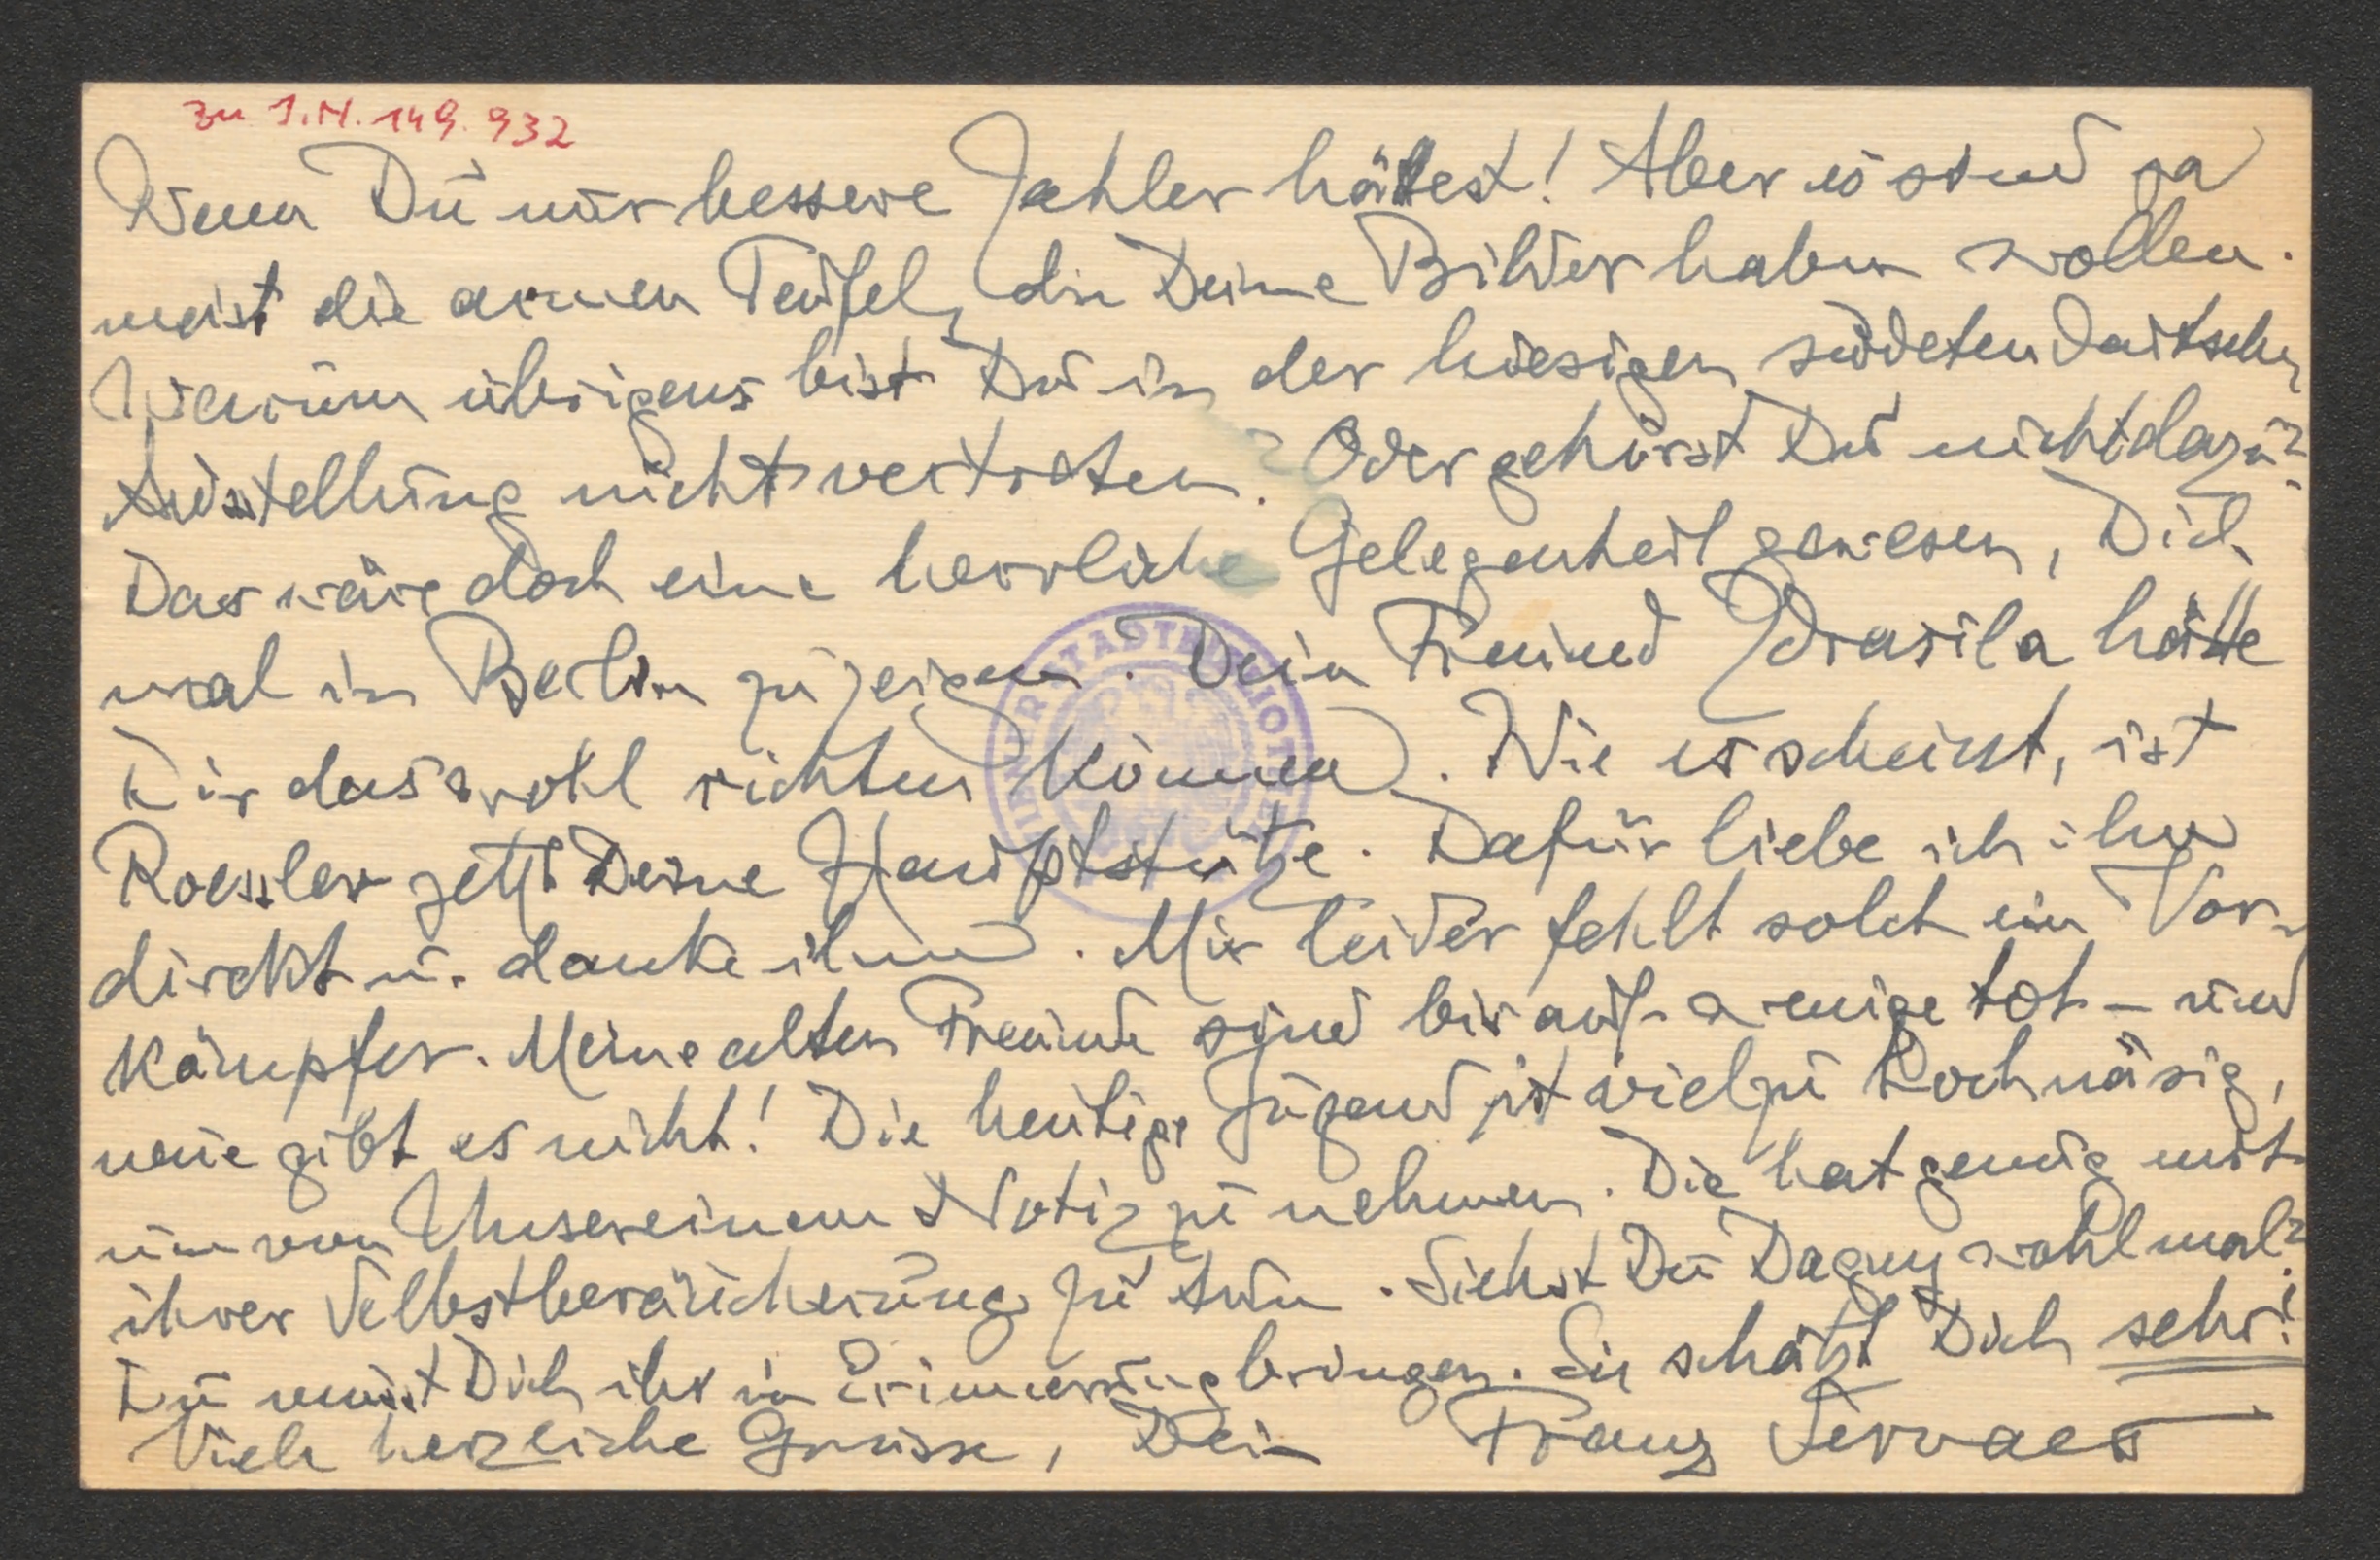 zu I.N. 149.932
Wenn Du nur bessere Zahler hättest! Aber es sind ja
meist die armen Teufel, die Deine Bilder haben wollen.
Warum übrigens bist Du in der hiesigen sudetendeutschen
Ausstellung nicht vertreten? Oder gehörst Du nicht dazu?
Das wäre doch eine herrliche Gelegenheit gewesen, Dich
mal in Berlin zu zeigen. Dein Freund Zdrasila hätte
Dir das wohl richten können. Wie es scheint, ist
Roessler jetzt Deine Hauptstütze. Dafür liebe ich ihn
direkt u. danke ihm. Mir leider fehlt solch ein Vor-
kämpfer. Meine alten Freunde sind bis auf wenige tot – und
neue gibt es nicht! Die heutige Jugend ist viel zu hochnäsig,
um von Unsereinem Notiz zu nehmen. Die hat genug mit
ihrer Selbstberäucherung zu tun. Siehst Du Dagny wohl mal?
Du musst Dich ihr in Erinnerung bringen. Sie schätzt Dich sehr!
Viele herzliche Grüsse, Dein Franz Servaes
WIENER STADTBIBLIOTHEK